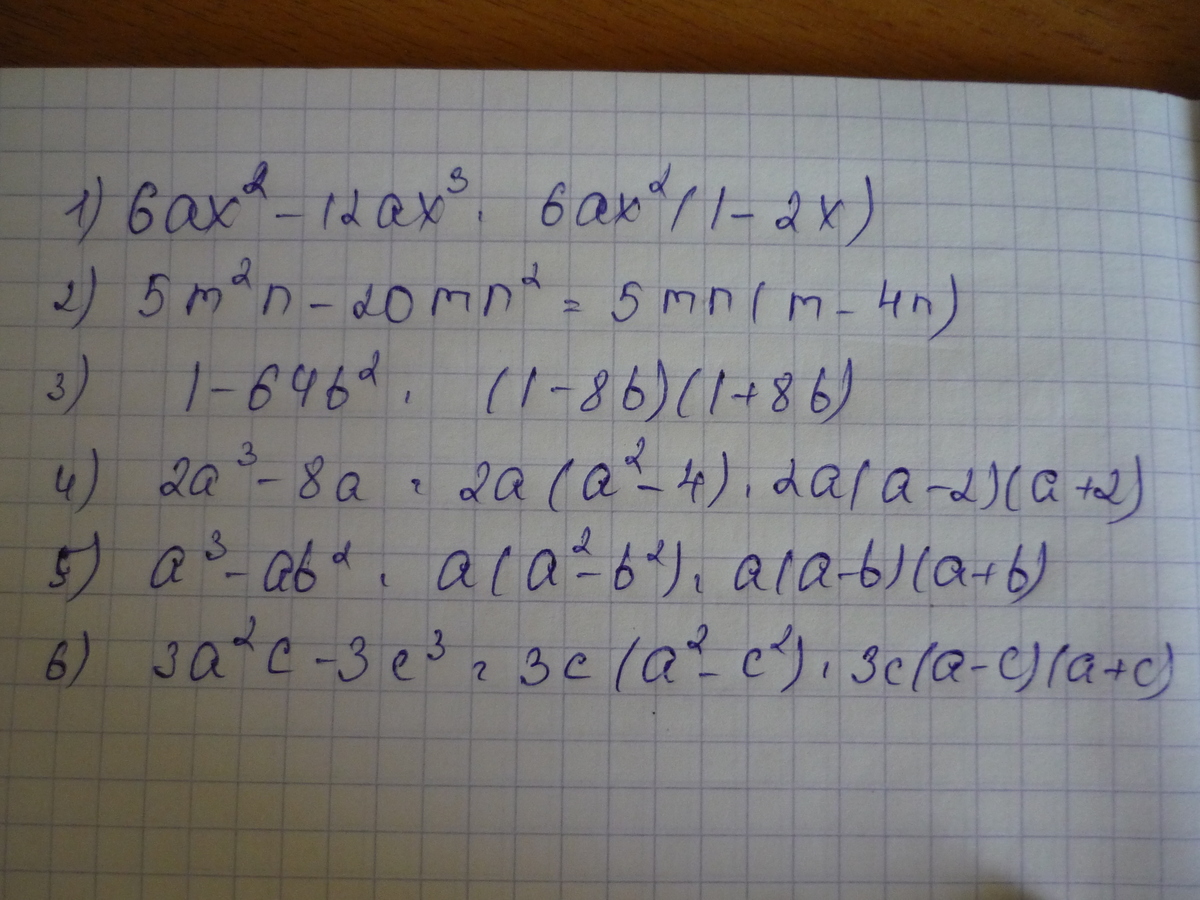 1) 6ax² - 12ax³ = 6ax²(1 - 2x)
2) 5m²n - 20mn² = 5mn(m - 4n)
3) 1 - 64b² = (1 - 8b)(1 + 8b)
4) 2a³ - 8a = 2a(a² - 4) = 2a(a - 2)(a + 2)
5) a³ - ab² = a(a² - b²) = a(a - b)(a + b)
6) 3a²c - 3c³ = 3c(a² - c²) = 3c(a - c)(a + c)